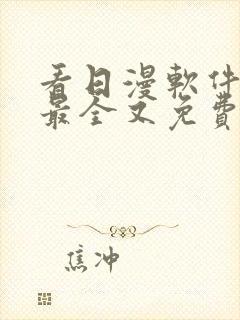 看日漫軟件
最全又免費
焦冲